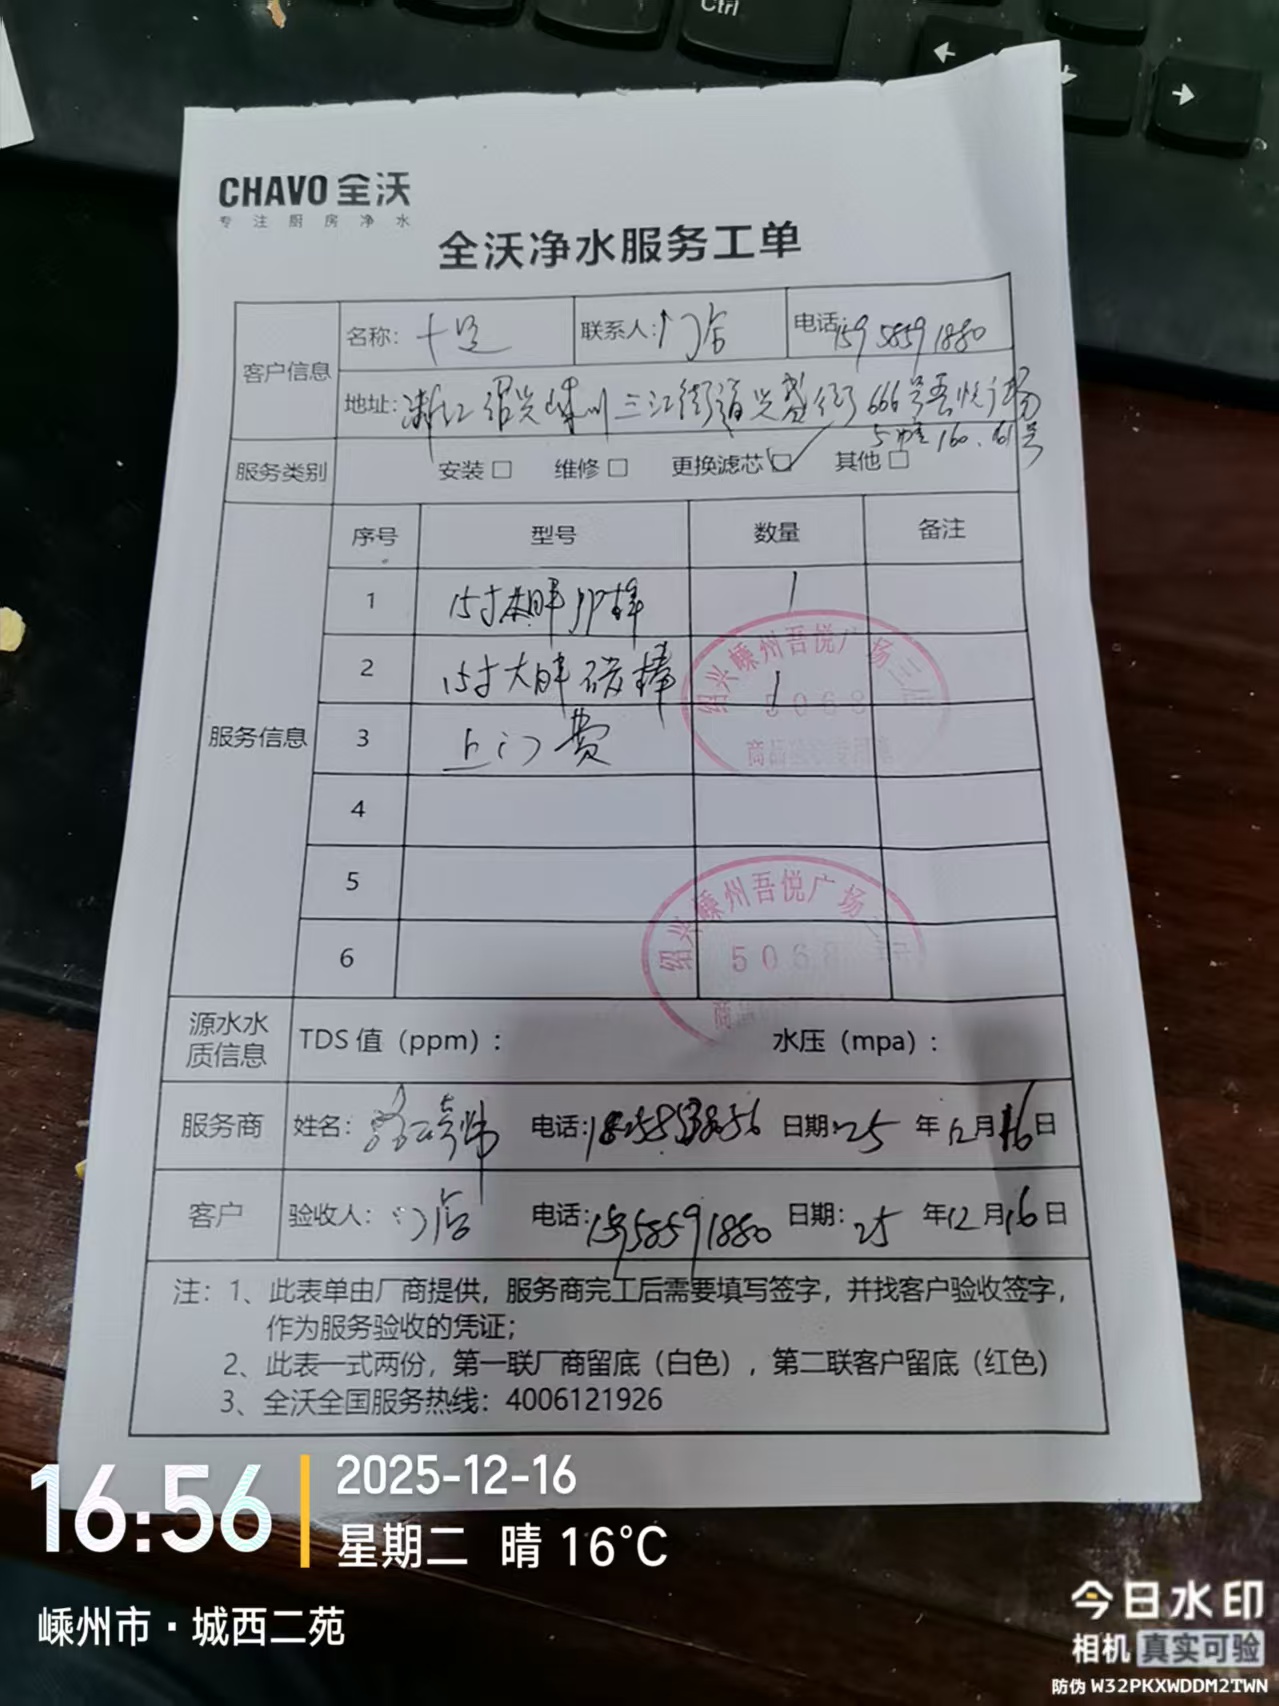 Ctrl
CHAVO 全沃
专注厨房净水
全沃净水服务工单
客户信息
名称：十足
联系人：门店
电话：15958591880
地址：浙江绍兴嵊州三江街道兴盛街666号吾悦广场
5幢160、161号
服务类别
安装□ 维修□ 更换滤芯☑ 其他□
服务信息
序号 型号 数量 备注
1 15寸大胖PP棒 1
2 15寸大胖碳棒 1
3 上门费
4
5
6
绍兴嵊州吾悦广场三店
5068
商品
绍兴嵊州吾悦广场
5068
商品
源水水质信息
TDS 值（ppm）： 水压（mpa）：
服务商 姓名： 电话： 日期：25 年12月16日
客户 验收人：门店 电话：15958591880 日期：25 年12月16日
注：1、此表单由厂商提供，服务商完工后需要填写签字，并找客户验收签字，
作为服务验收的凭证；
2、此表一式两份，第一联厂商留底（白色），第二联客户留底（红色）
3、全沃全国服务热线：4006121926
16:56
2025-12-16
星期二 晴 16°C
嵊州市·城西二苑
今日水印
相机 真实可验
防伪 W32PKXWDDM2TWN